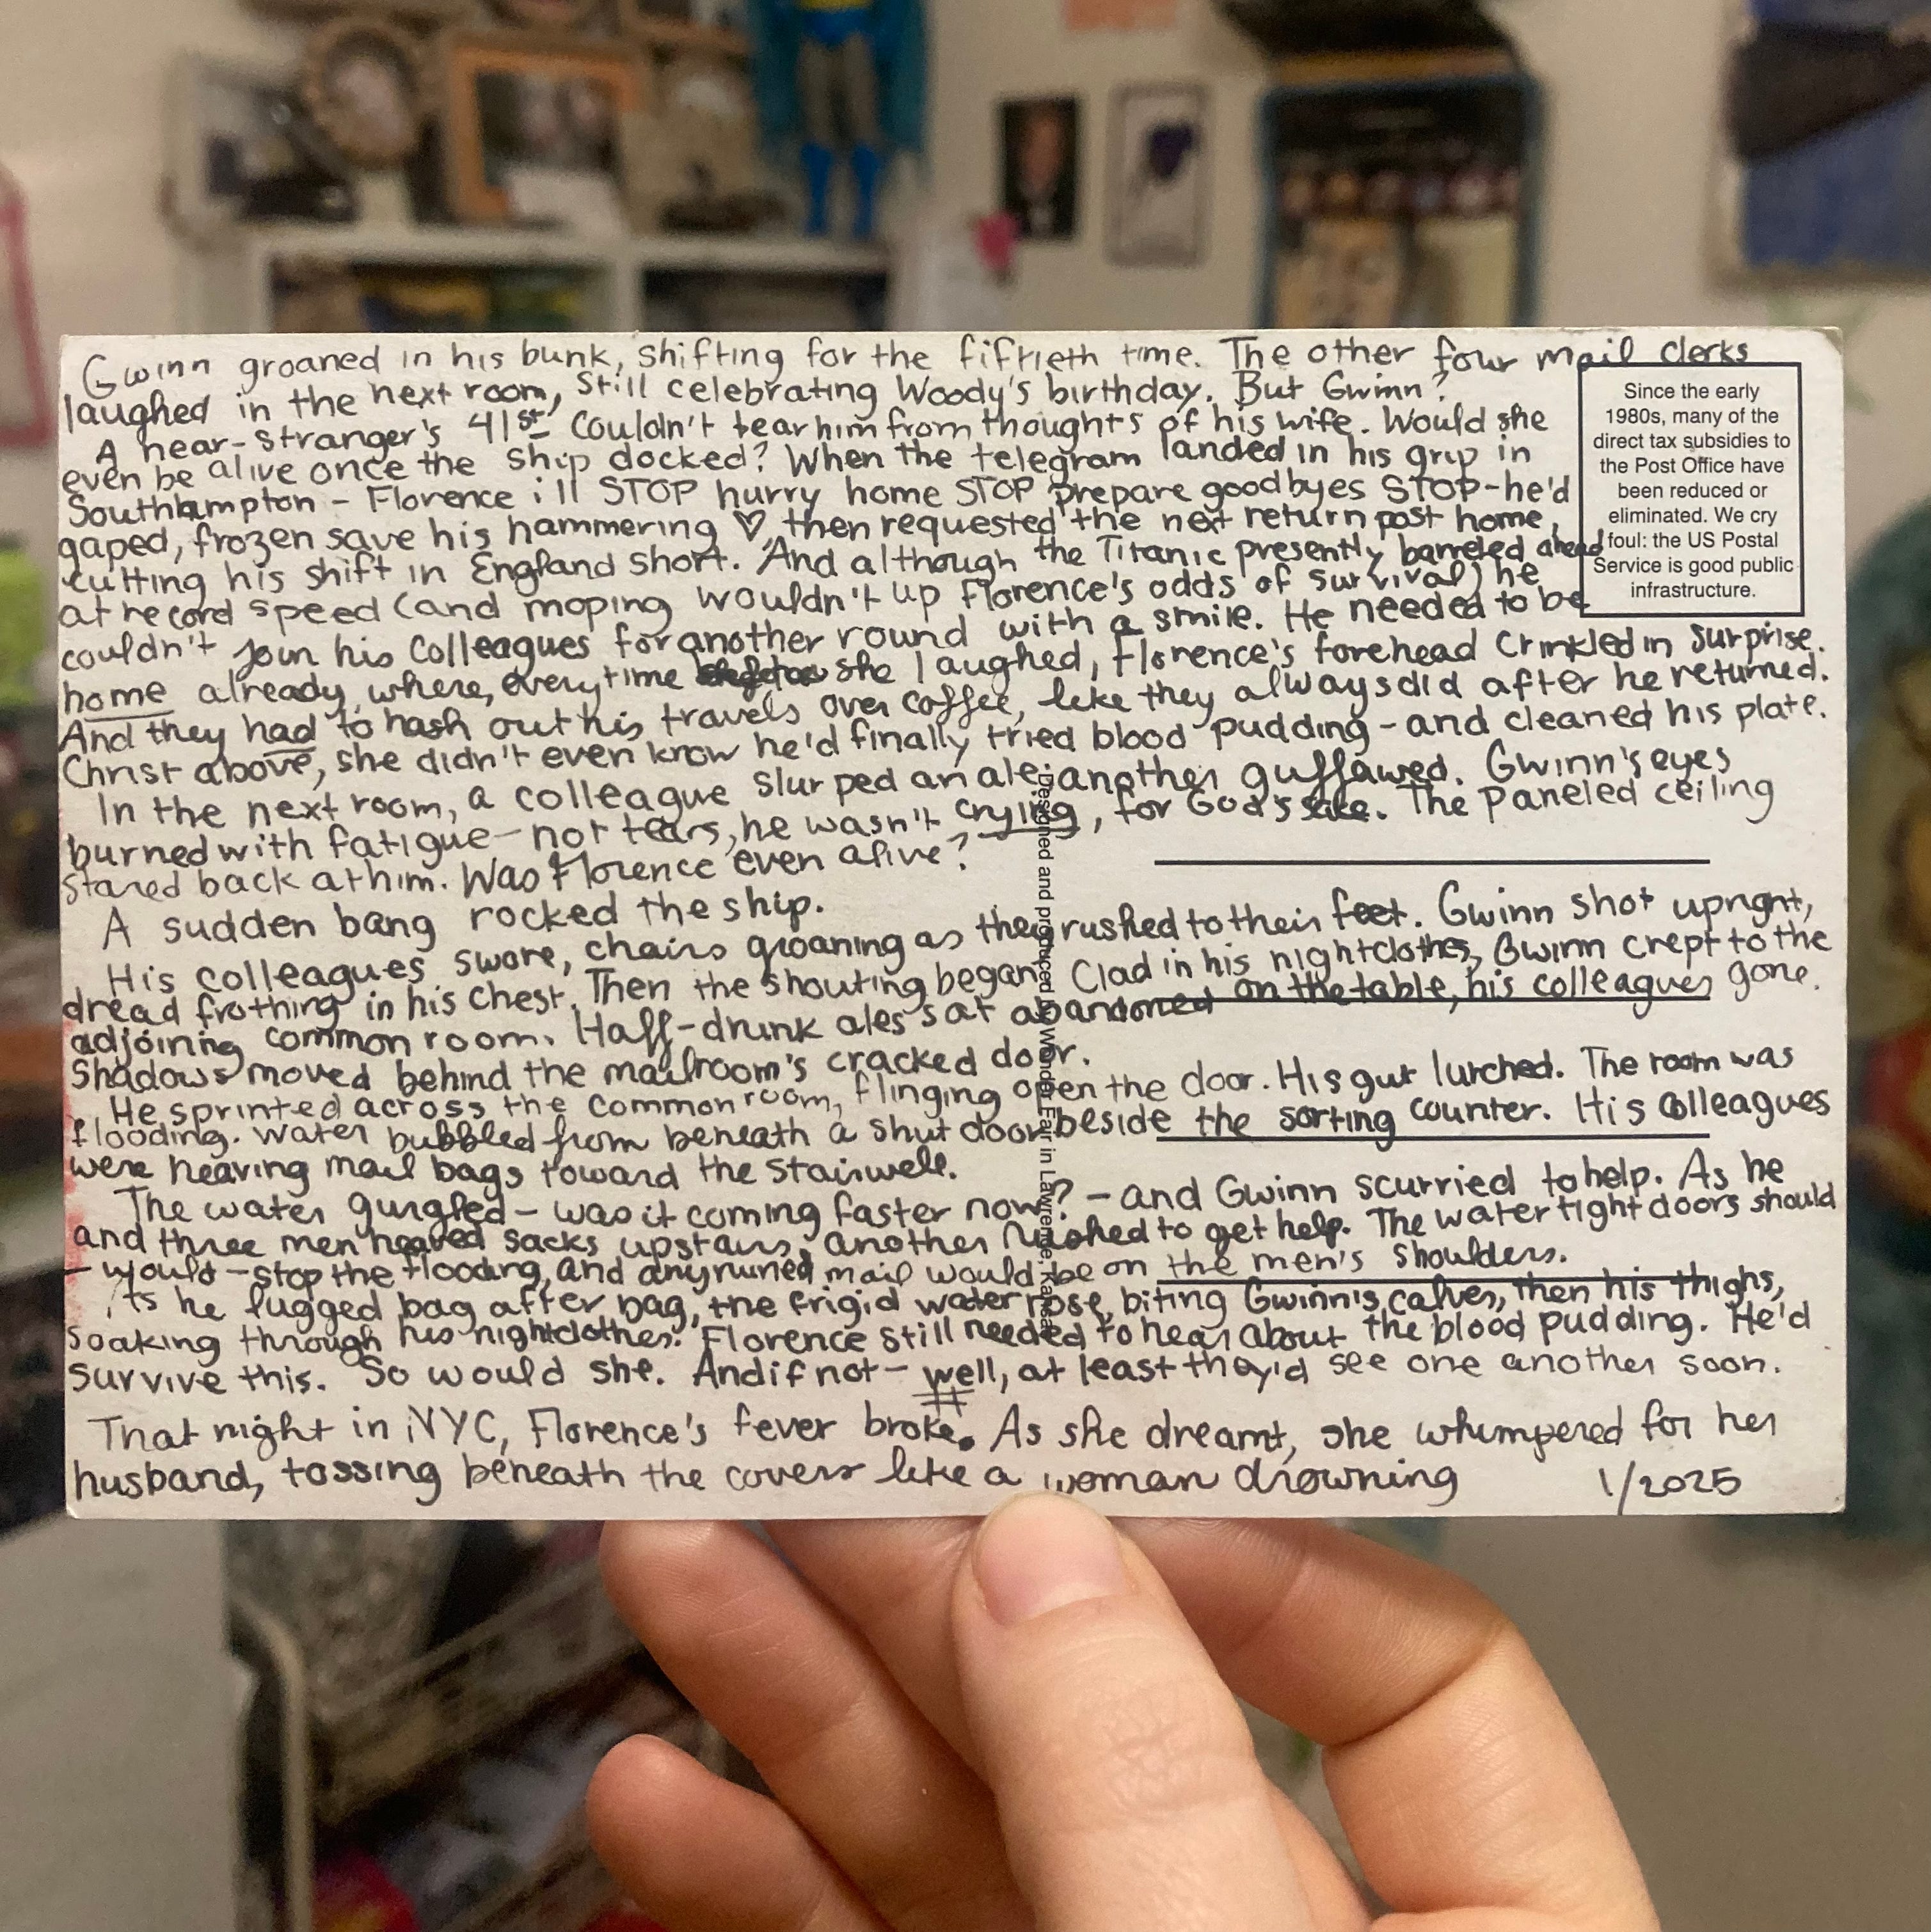 Gwinn groaned in his bunk, shifting for the fiftieth time. The other four mail clerks
laughed in the next room, still celebrating Woody's birthday. But Gwinn?
A near-stranger's 41st couldn't tear him from thoughts of his wife. Would she
even be alive once the ship docked? When the telegram landed in his grip in
Southhampton - Florence ill STOP hurry home STOP prepare goodbyes STOP - he'd
gaped, frozen save his hammering ♡, then requested the next return post home,
cutting his shift in England short. And although the Titanic presently barreled ahead
at record speed (and moping wouldn't up Florence's odds of survival) he
couldn't join his colleagues for another round with a smile. He needed to be
home already, where, every time she laughed, Florence's forehead crinkled in surprise.
And they had to hash out his travels over coffee, like they always did after he returned.
Christ above, she didn't even know he'd finally tried blood pudding - and cleaned his plate.
In the next room, a colleague slurped an ale; another guffawed. Gwinn's eyes
burned with fatigue - not tears, he wasn't crying, for God's sake. The paneled ceiling
stared back at him. Was Florence even alive?
A sudden bang rocked the ship.
His colleagues swore, chairs groaning as they rushed to their feet. Gwinn shot upright,
dread frothing in his chest. Then the shouting began. Clad in his nightclothes, Gwinn crept to the
adjoining common room. Half-drunk ales sat abandoned on the table, his colleagues gone.
Shadows moved behind the mailroom's cracked door.
He sprinted across the common room, flinging open the door. His gut lurched. The room was
flooding. Water bubbled from beneath a shut door beside the sorting counter. His colleagues
were heaving mail bags toward the stairwell.
The water gurgled - was it coming faster now? - and Gwinn scurried to help. As he
and three men heaved sacks upstairs, another rushed to get help. The watertight doors should
- would - stop the flooding, and any ruined mail would be on the men's shoulders.
As he lugged bag after bag, the frigid water rose, biting Gwinn's calves, then his thighs,
soaking through his nightclothes. Florence still needed to hear about the blood pudding. He'd
survive this. So would she. And if not - well, at least they'd see one another soon.
#
That night in NYC, Florence's fever broke. As she dreamt, she whimpered for her
husband, tossing beneath the covers like a woman drowning
1/2025
Since the early
1980s, many of the
direct tax subsidies to
the Post Office have
been reduced or
eliminated. We cry
foul: the US Postal
Service is good public
infrastructure.
Designed and produced by Wonder Fair in Lawrence, Kansas